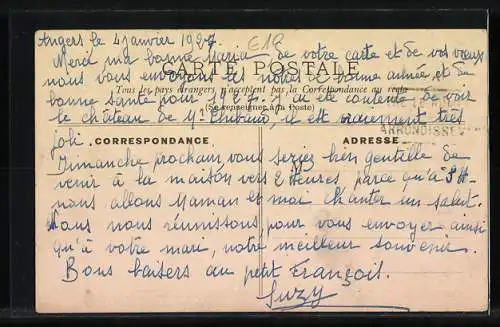 Angers le 4 janvier 1927.
E19
Merci ma bonne Maria de votre carte et de vos vœux
CARTE POSTALE
nous vous envoyons les nôtres de bonne année et de
Tous les pays étrangers n'acceptent pas la Correspondance au recto
bonne santé pour 1927. J'ai été contente de voir
(Se renseigner à la Poste)
le château de Mr Thibaud, il est vraiment très
ARRONDISSE
joli.
CORRESPONDANCE
ADRESSE
Dimanche prochain vous seriez bien gentille de
venir à la maison vers 2 Heures parce qu'à 3H
nous allons Maman et moi chanter un salut.
Nous nous réunissons pour vous envoyer ainsi
qu'à votre mari, notre meilleur souvenir.
Bons baisers au petit François.
Suzy